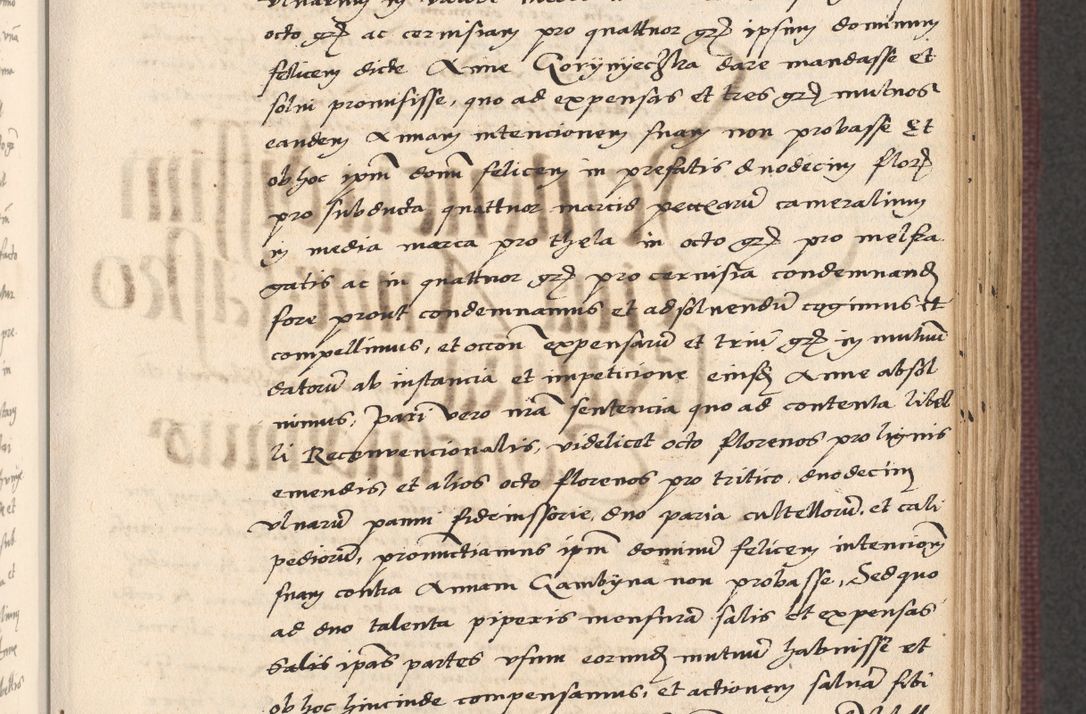 octo gr ac cervisiam pro quattuor gr ipsum dominum
felicem dicte Anne dare mandasse et
solvi promisisse, quo ad expensas et tres gr mutuos
eandem Annam intencionem suam non probasse Et
ob hoc ipm domm felicem in prefatis duodecim flor
pro subducta quattuor marcis cameralium
in media marca pro thela in octo gr pro melfra
gatis ac in quattuor gr pro cervisia condemnand
fore prout condemnamus et ad solvendum cogimus et
compellimus, et occon expensarum et trium gr in mutuum
datorum ab instancia et impeticione eiusd Anne absol
vimus, Pari vero nram sentencia quo ad contenta libel
li Reconvencionalis, videlicet octo florenos pro lignis
emendis, et alios octo florenos pro tritico, duodecim
vlnarum panni duo paria cultellorum, et cali
pediorum, pronunctiamus ipm dominum felicem intencionem
suam contra Annam Gambyna non probasse, Sed quo
ad duo talenta piperis mensuram salis et expensas
Salis ipas partes vsum eorund mutuum habuisse et
ob hoc hincinde compensamus, et actionem salvam sibi